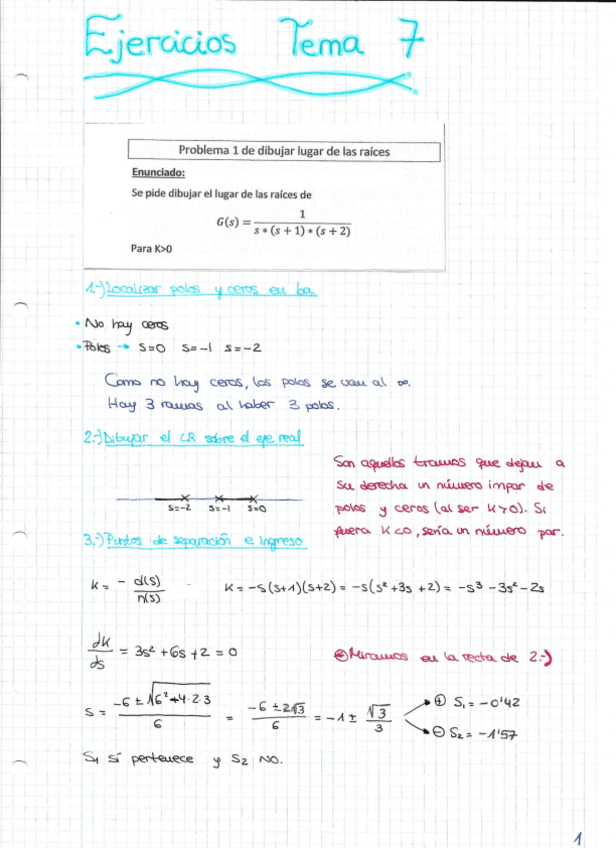 Ejercicios Tema 7
Problema 1 de dibujar lugar de las raíces
Enunciado:
Se pide dibujar el lugar de las raíces de
G(s) = 1 / s * (s + 1) * (s + 2)
Para K>0
1.-) Localizar polos y ceros en ba
• No hay ceros
• Polos → s=0 s=-1 s=-2
Como no hay ceros, los polos se van al ∞.
Hay 3 ramas al haber 3 polos.
2.-) Dibujar el LR sobre el eje real
Son aquellos tramos que dejan a
su derecha un número impar de
polos y ceros (al ser K>0). Si
fuera K<0, sería un número par.
s=-2 s=-1 s=0
3.-) Puntos de separación e ingreso
K = - d(s) / n(s)
K = -s(s+1)(s+2) = -s(s²+3s+2) = -s³-3s²-2s
dK/ds = 3s²+6s+2 = 0
Miramos en la recta de 2.-)
s = -6 ± √6²-4·2·3 / 6 = -6 ± 2√3 / 6 = -1 ± √3 / 3
⊕ S₁ = -0'42
⊖ S₂ = -1'57
S₁ sí pertenece y S₂ NO.
1